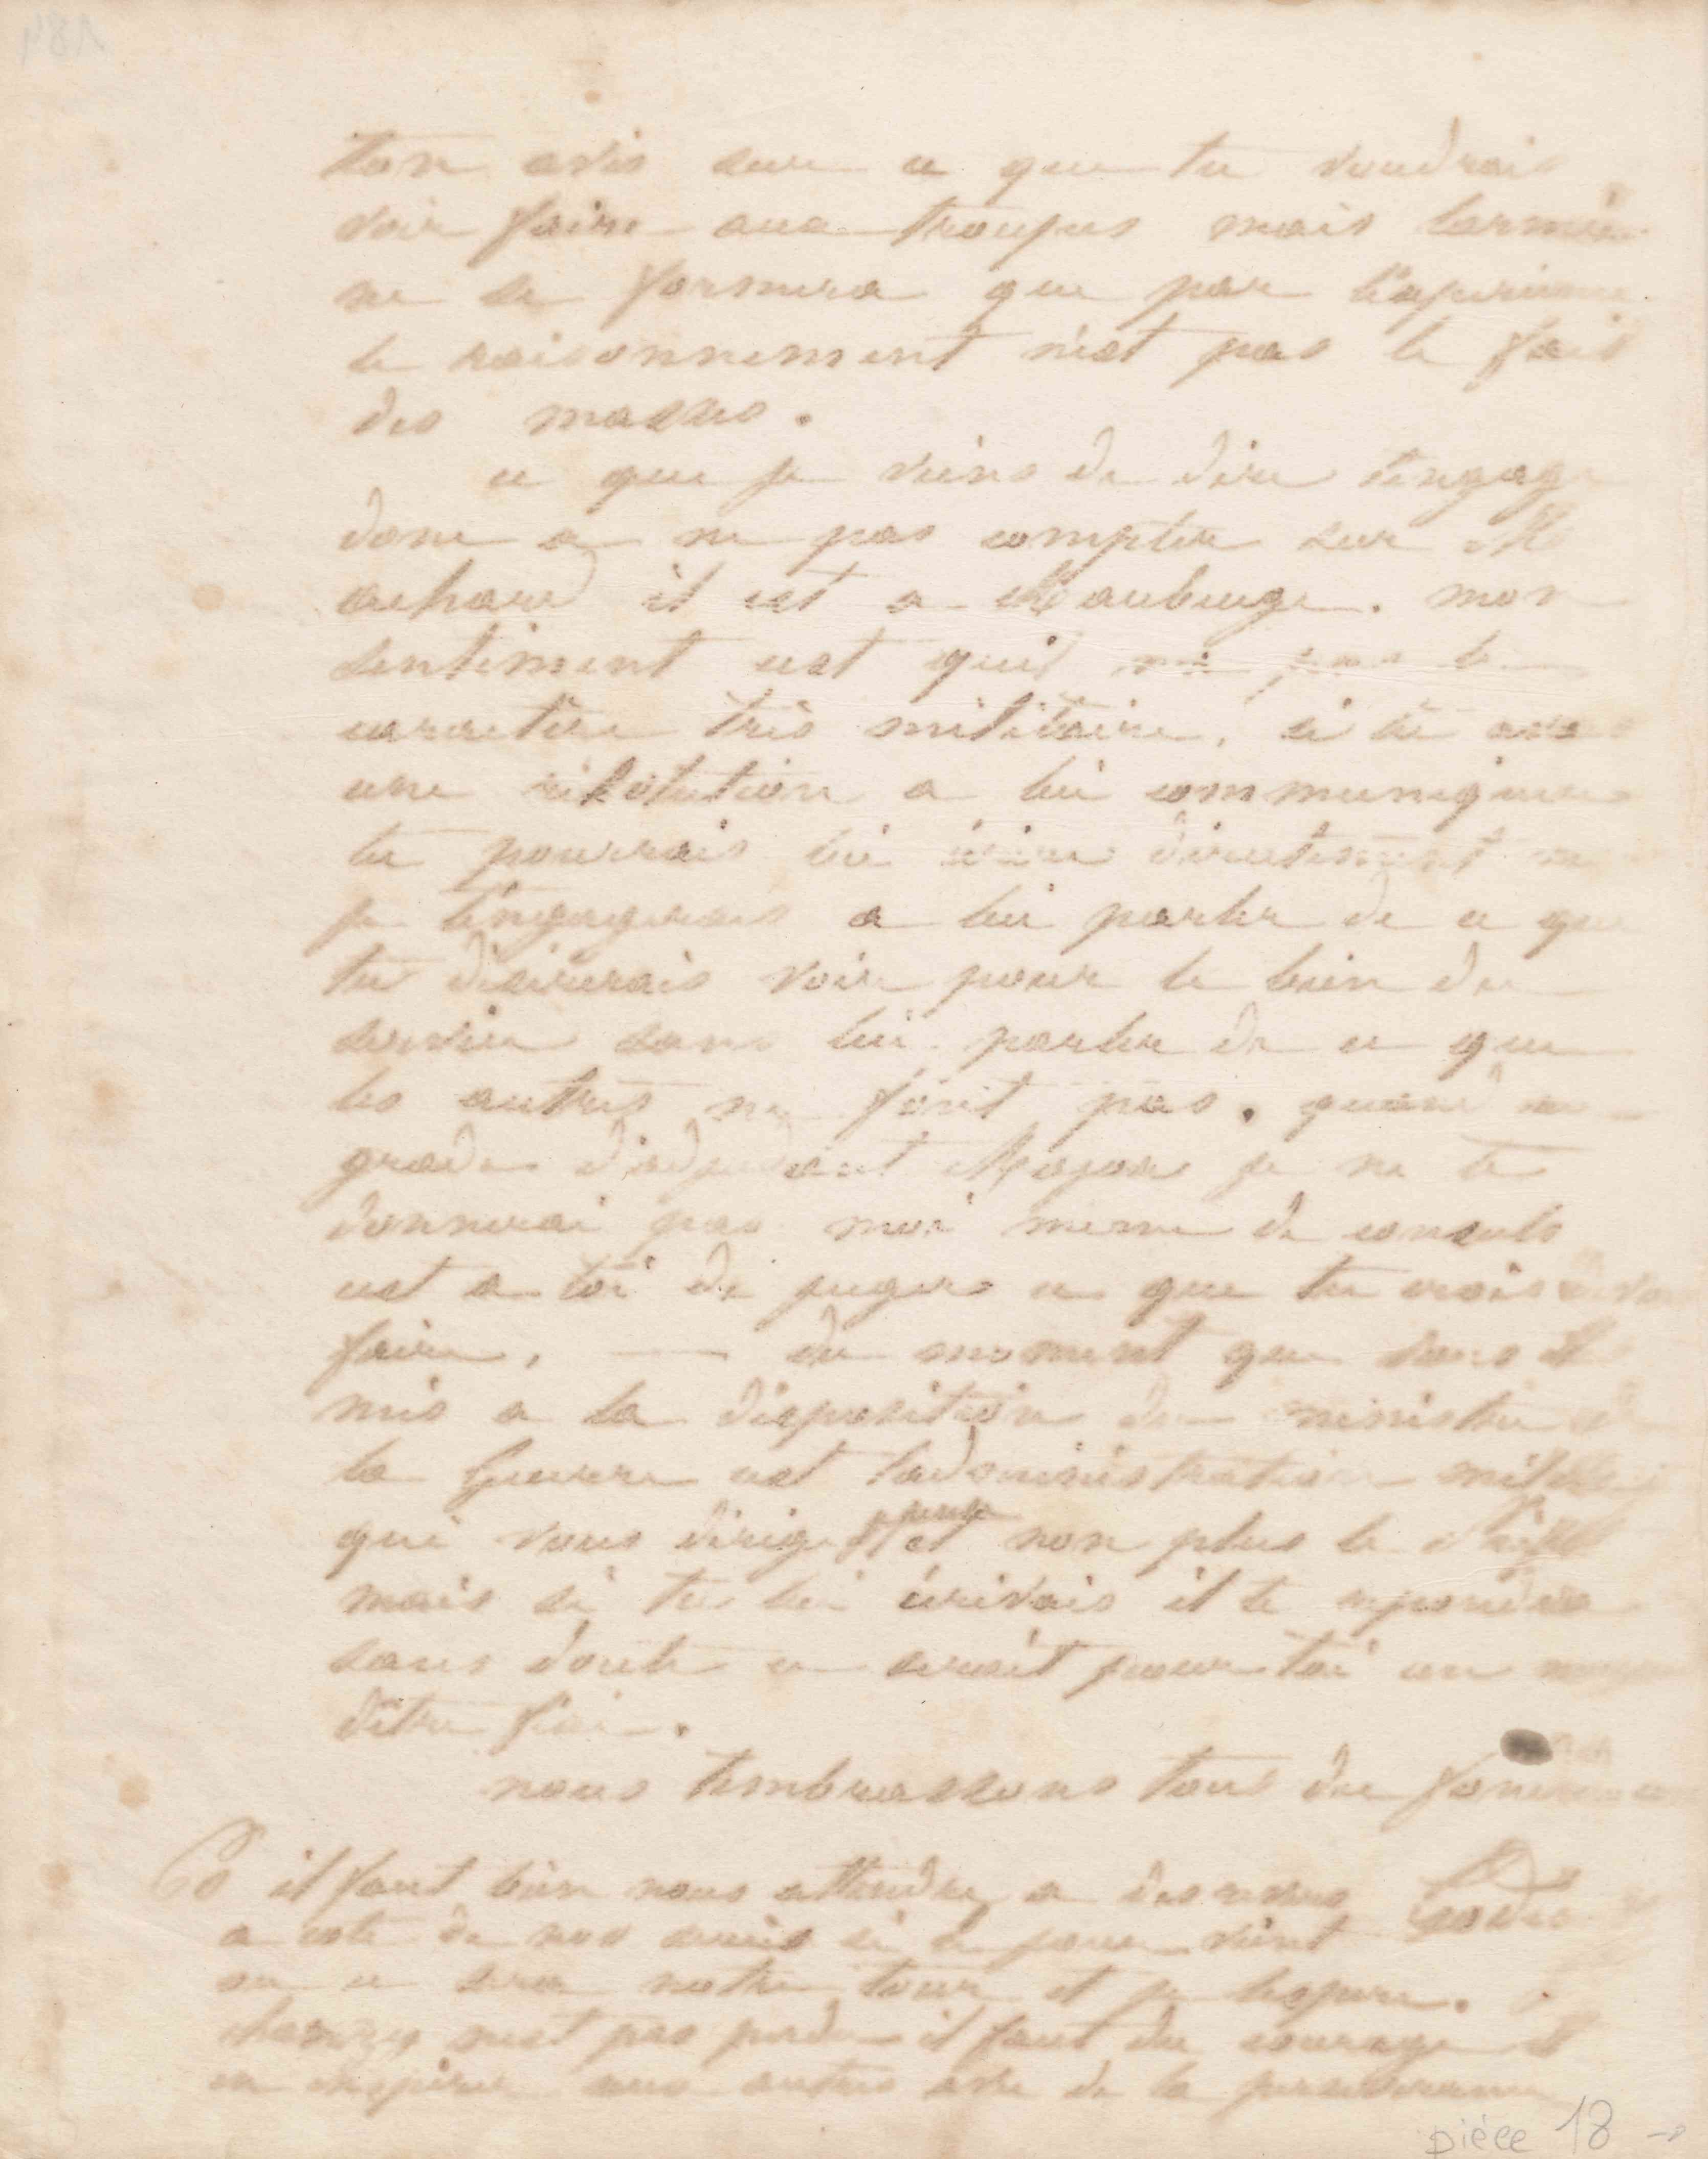 ton avis sur ce que tu voudrais
voir faire aux troupes mais larmée
ne se formera que par l'experience
le raisonnement n'est pas le fait
des masses.
ce que je viens de dire t'engage
donc a ne pas compter sur Mr
achard il est a Maubeuge. mon
sentiment est quil na pas le
caractère très militaire, si tu avais
une résolution a lui communiquer
tu pourrais lui écrire directement
je t'engagerais a lui parler de ce que
tu désirerais voir pour le bien du
service sans lui parler de ce que
les autres ne font pas. quand au
grade d'adjudant Major je ne te
donnerai pas moi meme de conseils
cest a toi de juger ce que tu crois devoir
faire, — du moment que vous êtes
mis a la disposition du ministre de
la Guerre cest ladministration
qui vous dirige et non plus le Préfet
mais si tu lui écrivais il te repondra
sans doute ce serait pour toi un moyen
d'être fixé.
nous t'embrassons tous du fond
PS il faut bien nous attendre a des revers
a coté de nos succès si le jour vient
ou ce sera notre tour et je l'espere.
chanzy nest pas perdu il faut du courage et
en inspirer aux autres avec de la perseverance
pièce 18 →
184